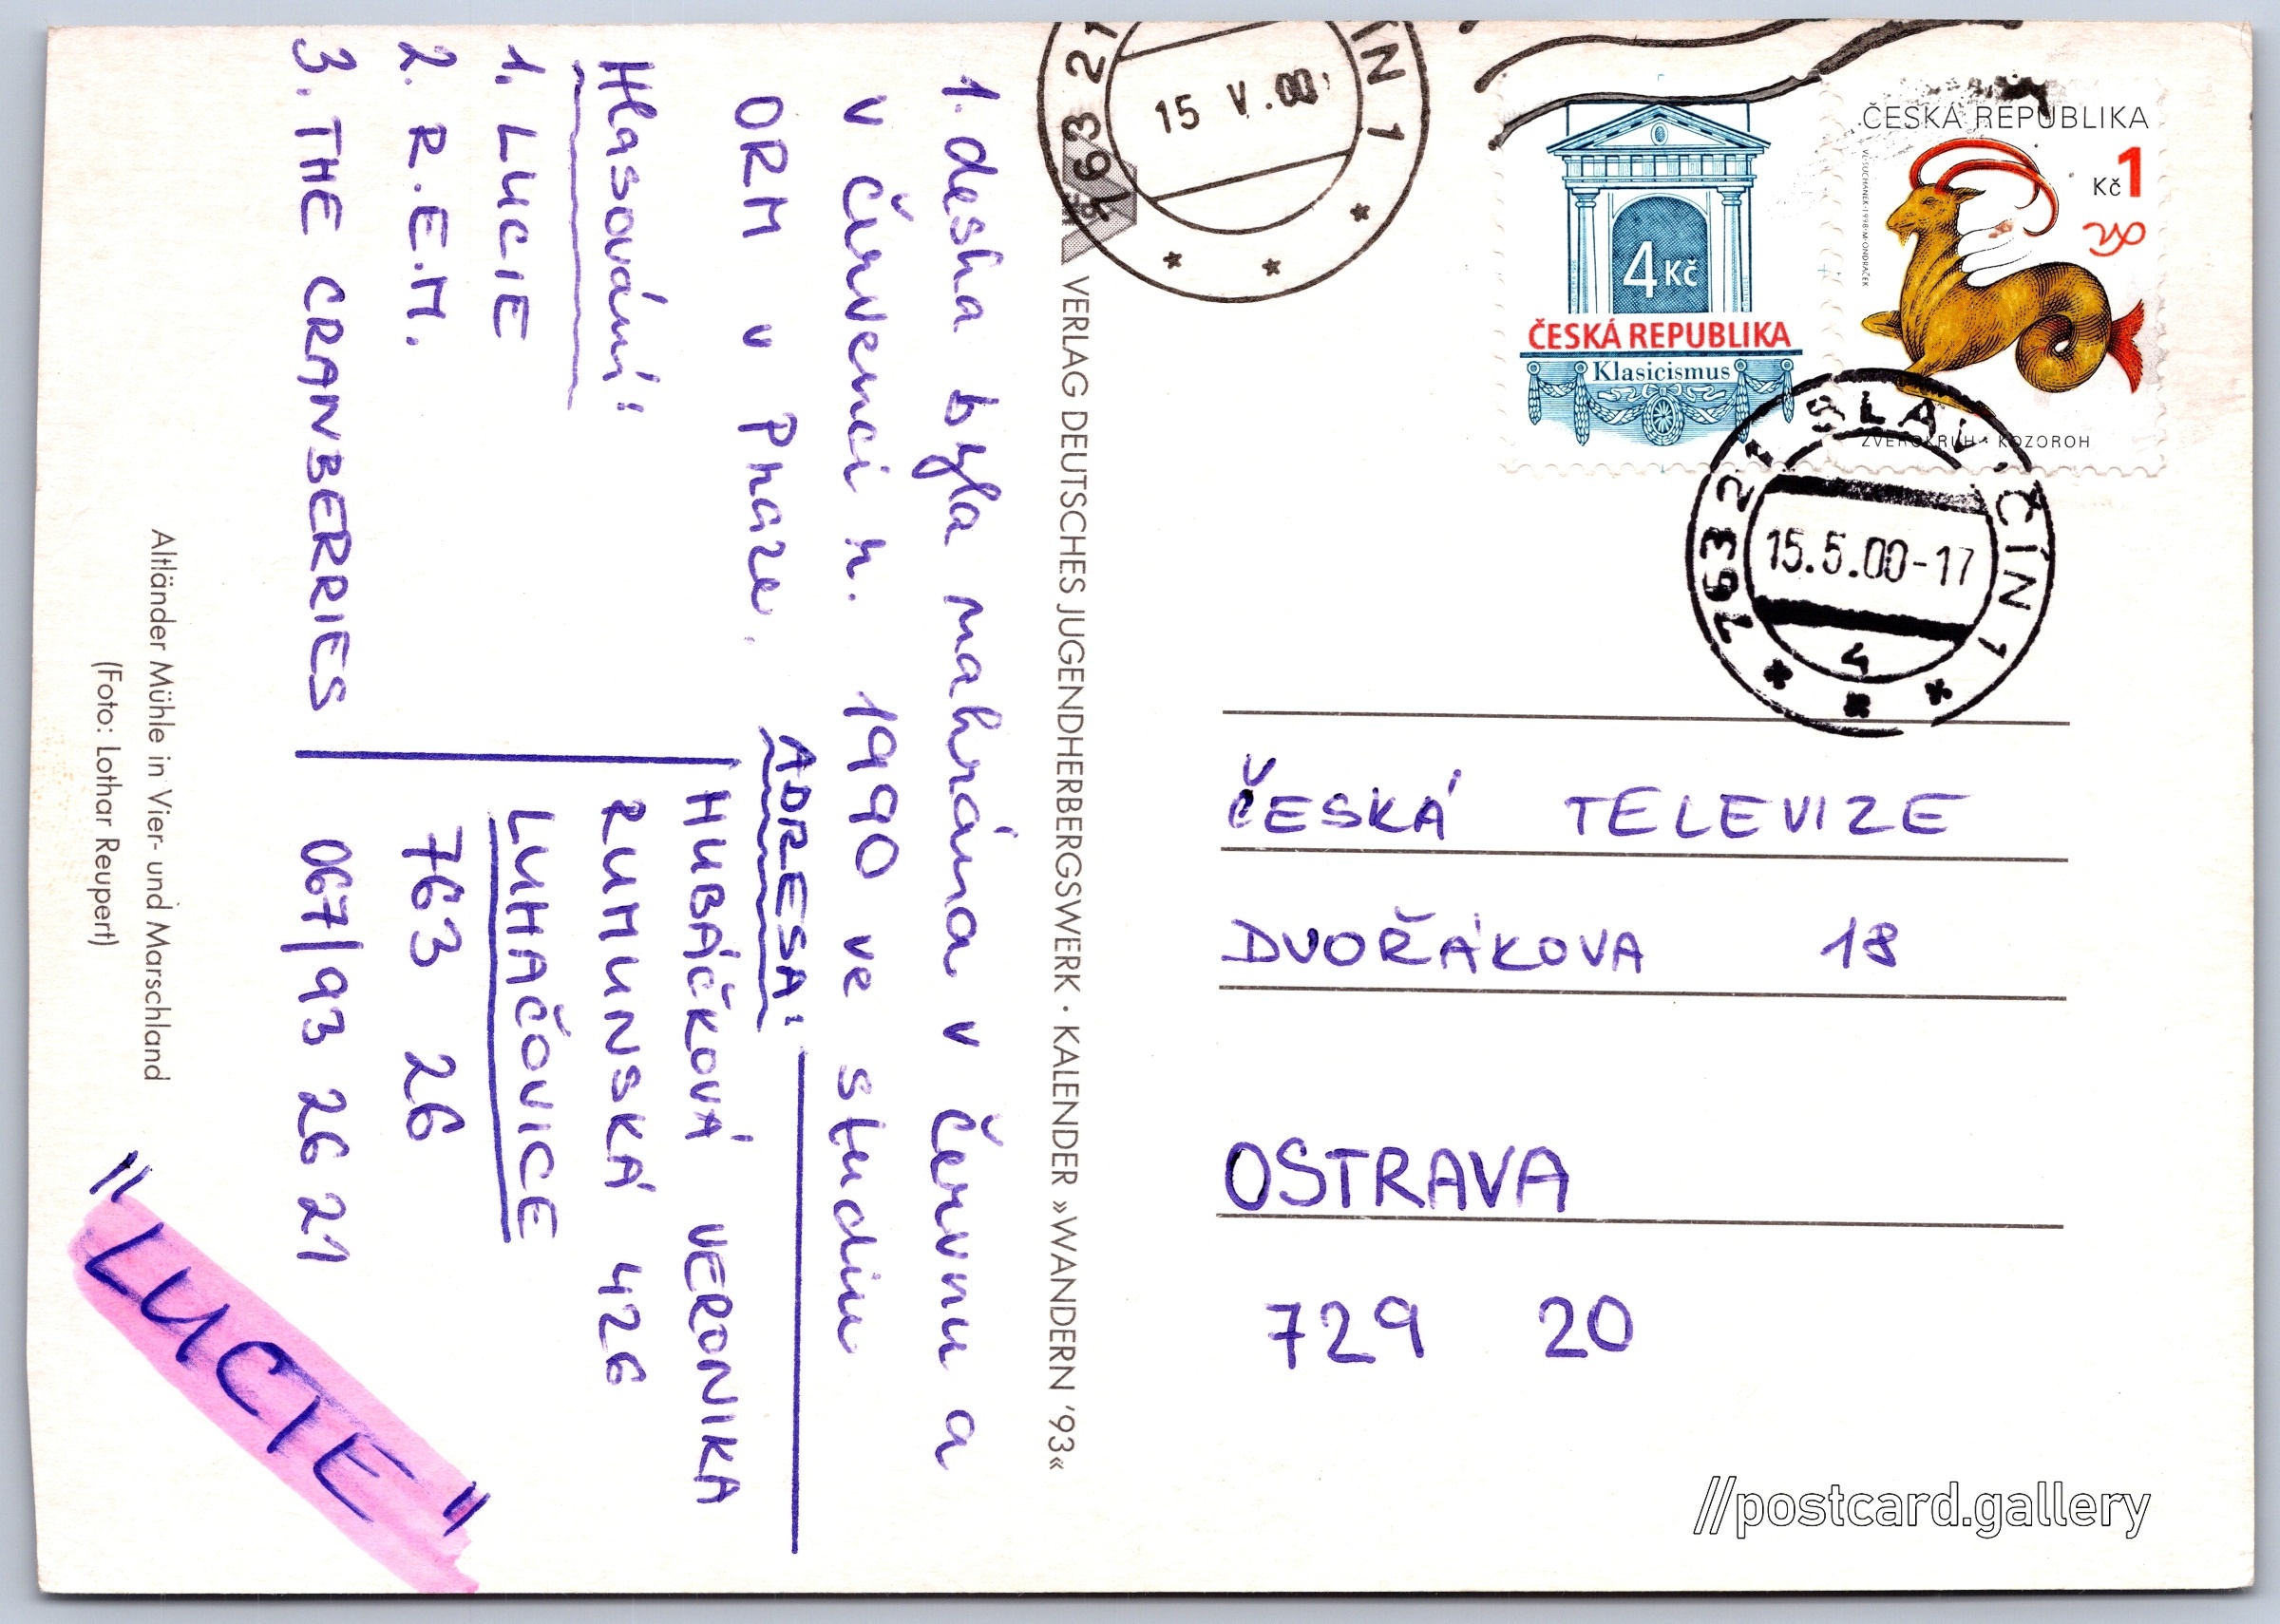 1. deska byla nahrána v červnu a
v červenci r. 1990 ve studiu
ORM v Praze.
Hlasování:
1. LUCIE
2. R.E.M.
3. THE CRANBERRIES
ADRESA:
HUBÁČKOVÁ VERONIKA
RUMUNSKÁ 426
LUHAČOVICE
763 26
067/93 26 21
"LUCIE"
Altländer Mühle in Vier- und Marschland
(Foto: Lothar Reupert)
VERLAG DEUTSCHES JUGENDHERBERGSWERK · KALENDER »WANDERN '93«
163 21
ÍN 1
15 V.00
4 Kč
ČESKÁ REPUBLIKA
Klasicismus
ČESKÁ REPUBLIKA
Kč 1
ZVĚROKRUH · KOZOROH
763 21 SLAVIČÍN 1
15.5.00-17
4
ČESKÁ TELEVIZE
DVOŘÁKOVA 18
OSTRAVA
729 20
//postcard.gallery